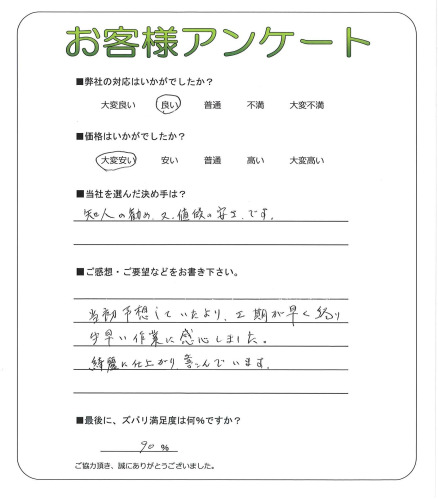 お客様アンケート
■弊社の対応はいかがでしたか?
大変良い 良い 普通 不満 大変不満
■価格はいかがでしたか?
大変安い 安い 普通 高い 大変高い
■当社を選んだ決め手は?
知人の勧め、又、値段の安さ、です。
■ご感想・ご要望などをお書き下さい。
当初予想していたより、工期が早く終り
早い作業に感心しました。
綺麗に仕上がり、喜んでいます。
■最後に、ズバリ満足度は何%ですか?
90 %
ご協力頂き、誠にありがとうございました。